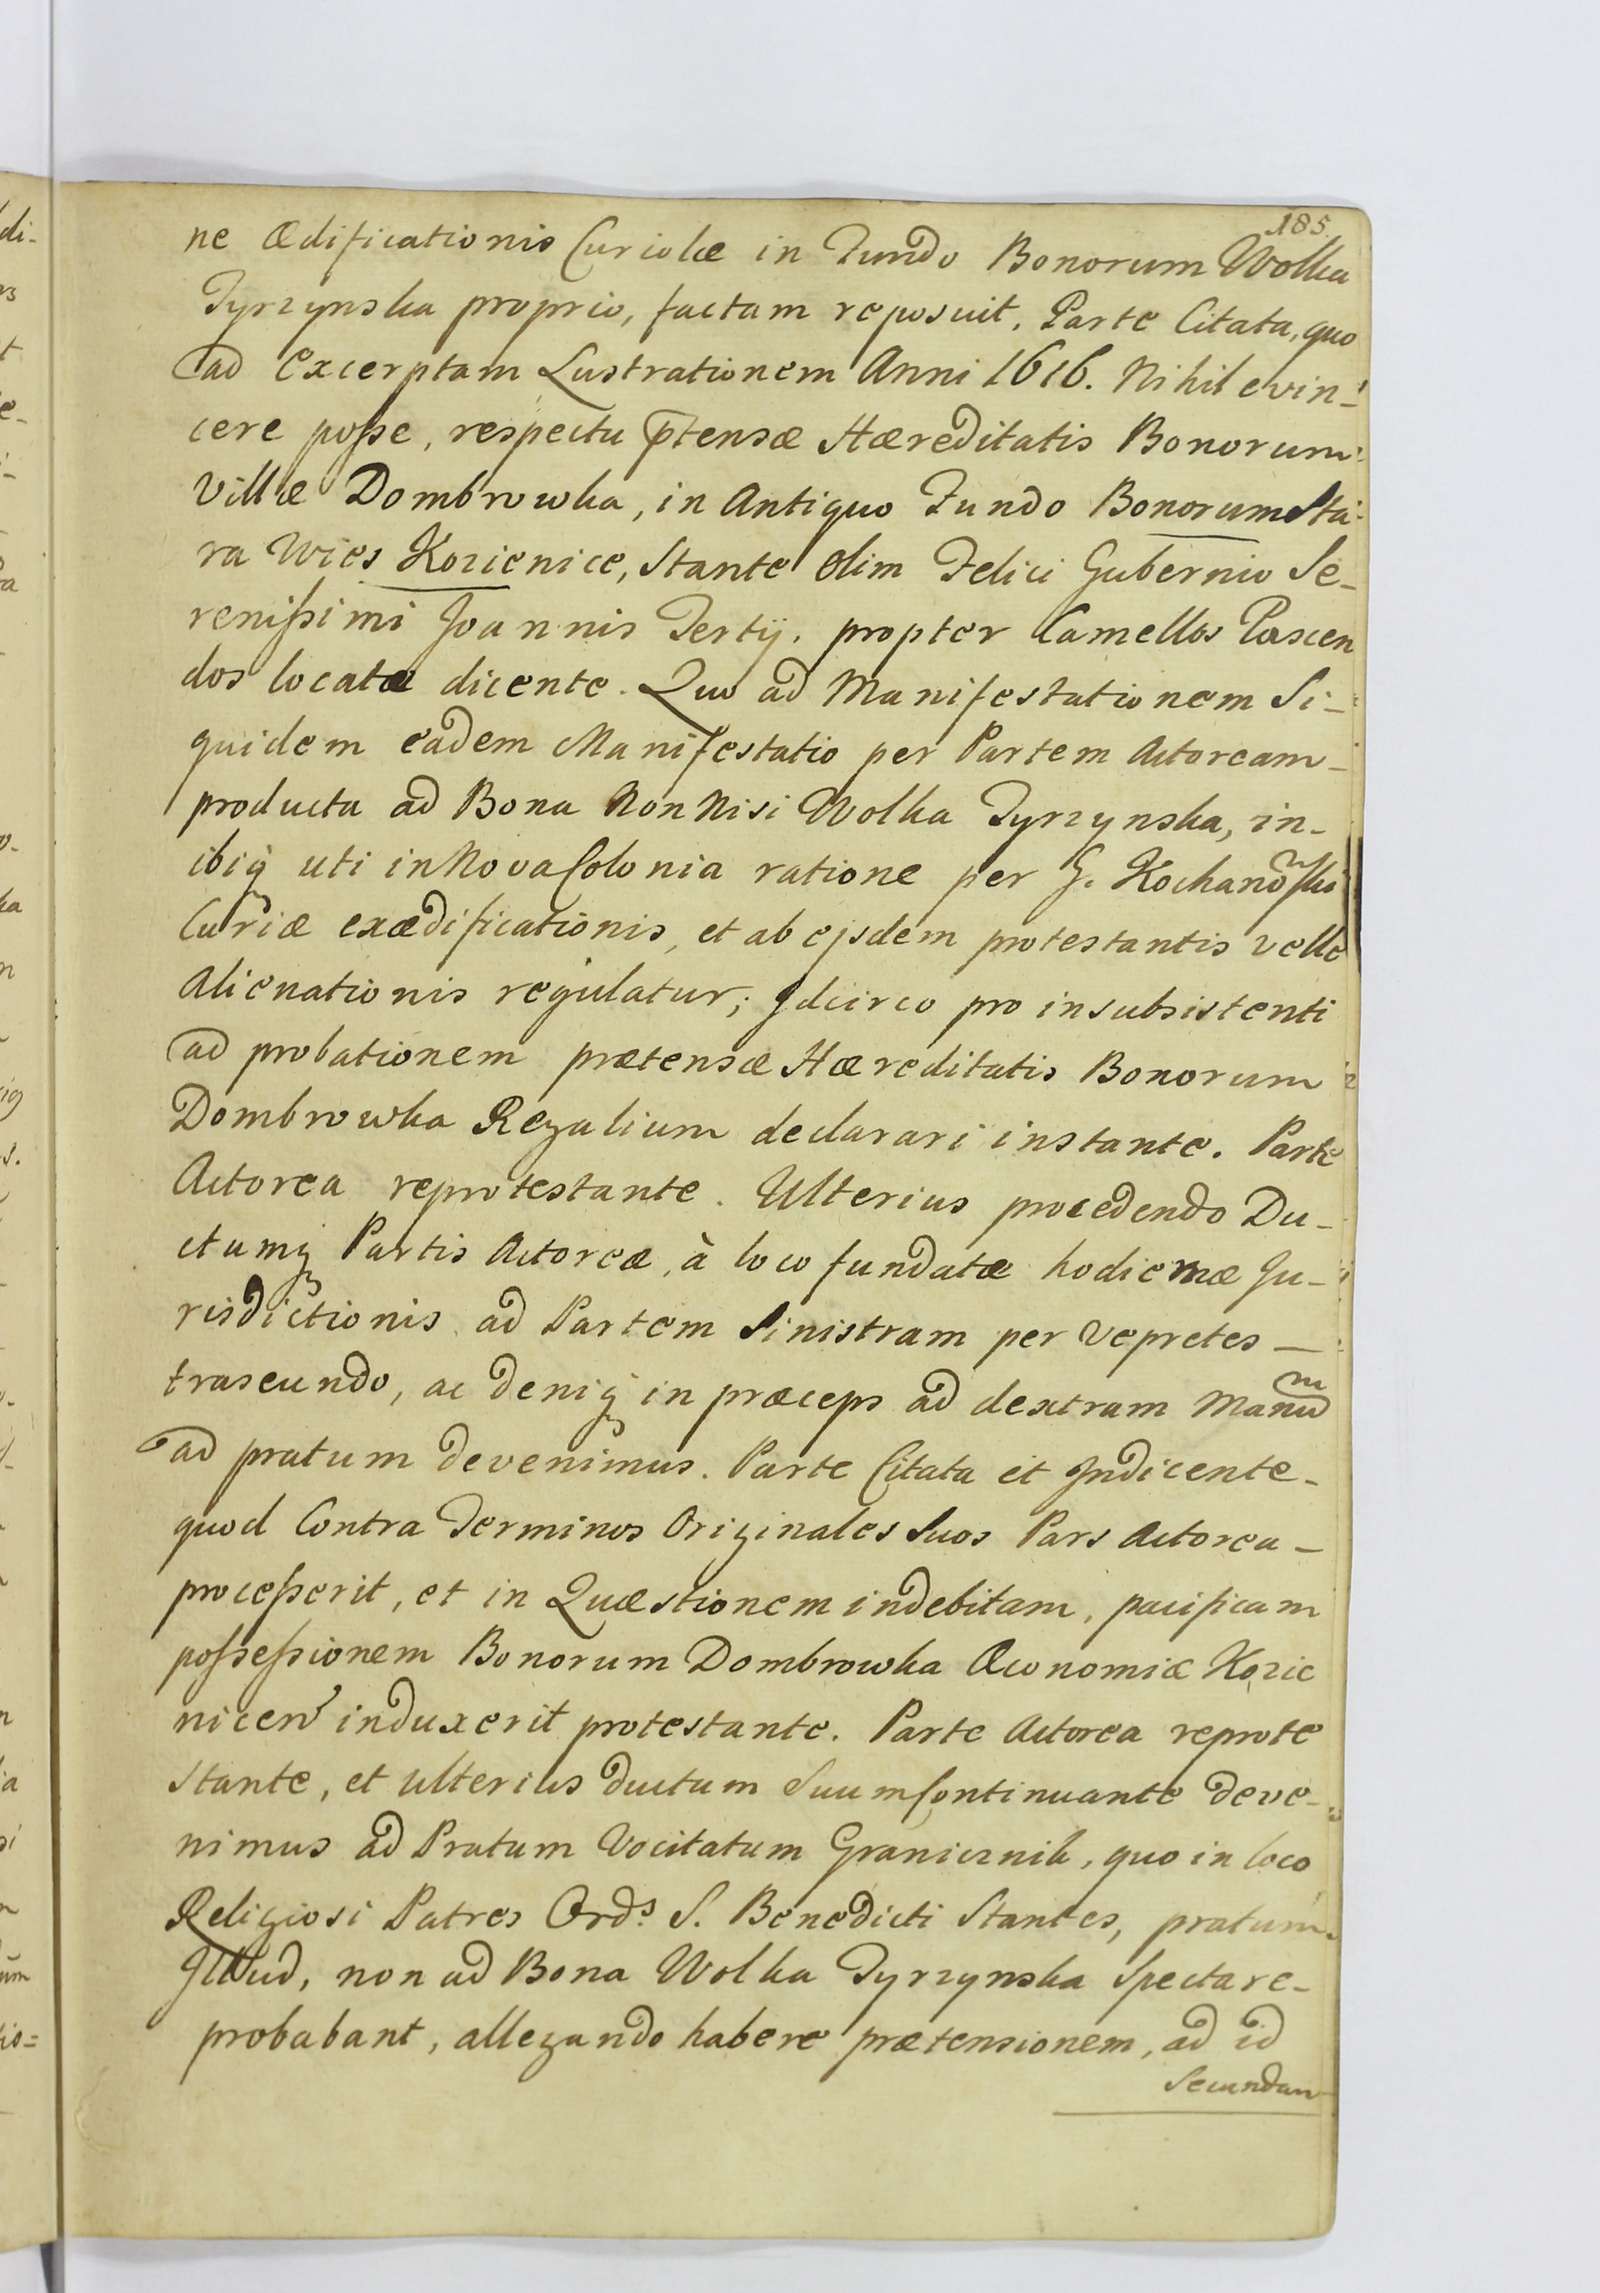 185.
ne Ædificationis Curiolæ in Fundo Bonorum Wolka
Tyrzynska proprio, factam reposuit, Parte Citata, quo
ad Excerptam Lustrationem Anni 1616. Nihil evin-
cere poſse, respectu p̄tensæ Hæreditatis Bonorum
Villæ Dombrowka, in Antiquo Fundo Bonorum Sta-
ra Wies Kozienice, Stante olim Felici Gubernio Se-
reniſsimi Joannis Tertij. propter Camellos Pascen
dos locatæ dicente. Quo ad Manifestationem Si-
quidem eadem Manifestatio per Partem Actoream-
producta ad Bona Non Nisi Wolka Tyrzynska, in-
ibiq uti in Nova Colonia ratione per G. Kochanowski
Curiæ exædificationis, et ab ejsdem protestantis velle
Alienationis regulatur; Idcirco pro insubsistenti
ad probationem prætensæ Hæreditatis Bonorum
Dombrowka Regalium declarari instante. Parte
Actorea reprotestante. Ulterius procedendo Du-
ctumq Partis Actoreæ, à loco fundatæ hodiernæ Ju-
risdictionis ad Partem Sinistram per Vepretes -
traseundo, ac deniq in præceps ad dextram Manum
ad pratum devenimus. Parte Citata et Indicente-
quod Contra Terminos Originales Suos Pars Actorea-
proceſserit, et in Quæstionem indebitam, pacificam
poſseſsionem Bonorum Dombrowka Œconomiæ Kozie
nicen induxerit protestante. Parte Actorea reprote
stante, et ulterius ductum Suum Continuante deve-
nimus ad Pratum Vocitatum Granicznik, quo in loco
Religiosi Patres Ords S. Benedicti Stantes, pratum
Illud, non ad Bona Wolka Tyrzynska Spectare-
probabant, allegando habere prætensionem, ad id
Secundum